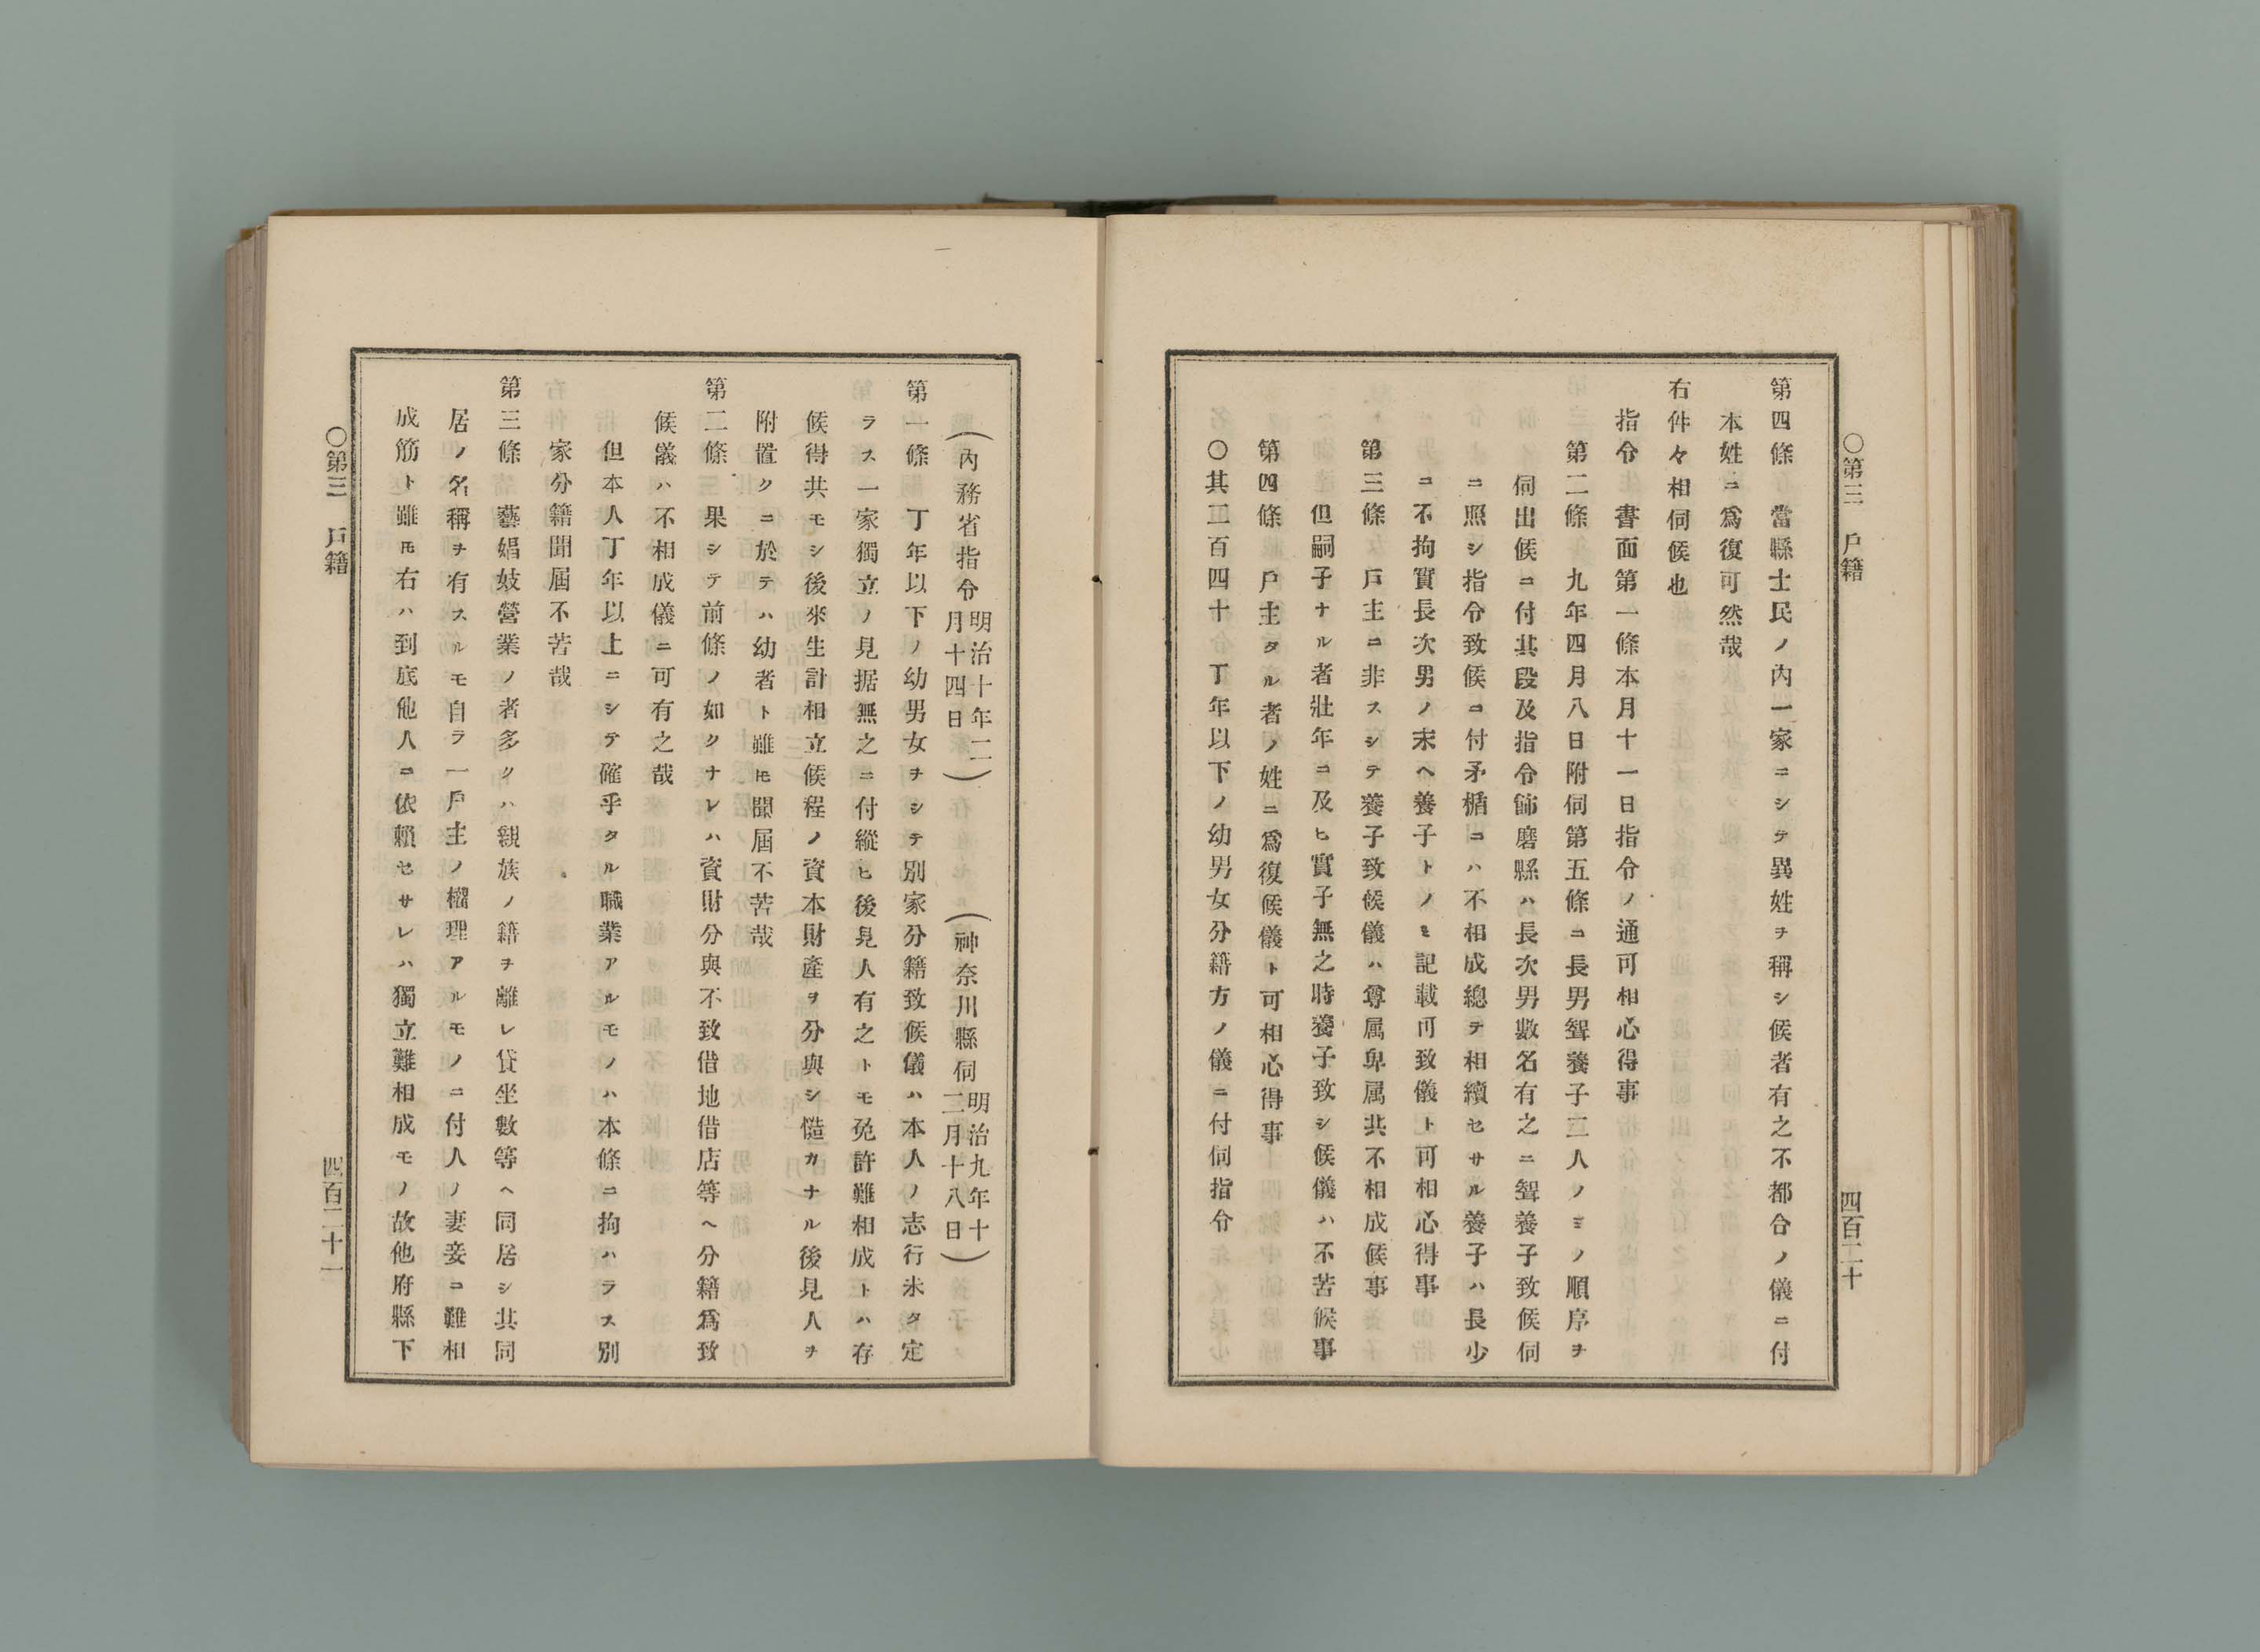 ○第三　戶籍　四百二十
第四條　當縣士民ノ內一家ニシテ異姓ヲ稱シ候者有之不都合ノ儀ニ付
本姓ニ爲復可然哉
右件々相伺候也
指令　書面第一條本月十一日指令ノ通可相心得事
第二條　九年四月八日附伺第五條ニ長男聟養子三人ノミノ順序ヲ
伺出候ニ付其段及指令飾磨縣ハ長次男數名有之ニ聟養子致候伺
ニ照シ指令致候ニ付矛楯ニハ不相成總テ相續セサル養子ハ長少
ニ不拘實長次男ノ末ヘ養子トノミ記載可致儀ト可相心得事
第三條　戶主ニ非スシテ養子致候儀ハ尊属卑属共不相成候事
但嗣子ナル者壯年ニ及ヒ實子無之時養子致シ候儀ハ不苦候事
第四條　戶主タル者ノ姓ニ爲復候儀ト可相心得事
○其二百四十　丁年以下ノ幼男女分籍方ノ儀ニ付伺指令
（內務省指令明治十年二月十四日）　（神奈川縣伺明治九年十二月十八日）
第一條　丁年以下ノ幼男女ヲシテ別家分籍致候儀ハ本人ノ志行未タ定
ラス一家獨立ノ見据無之ニ付縱ヒ後見人有之トモ免許難相成トハ存
候得共モシ後來生計相立候程ノ資本財產ヲ分與シ慥カナル後見人ヲ
附置クニ於テハ幼者ト雖𪜈聞屆不苦哉
第二條　果シテ前條ノ如クナレハ資財分與不致借地借店等ヘ分籍爲致
候儀ハ不相成儀ニ可有之哉
但本人丁年以上ニシテ確乎タル職業アルモノハ本條ニ拘ハラス別
家分籍聞屆不苦哉
第三條　藝娼妓營業ノ者多クハ親族ノ籍ヲ離レ貸坐敷等ヘ同居シ其同
居ノ名稱ヲ有スルモ自ラ一戶主ノ權理アルモノニ付人ノ妻妾ニ難相
成筋ト雖𪜈右ハ到底他人ニ依賴セサレハ獨立難相成モノ故他府縣下
○第三　戶籍　四百二十一